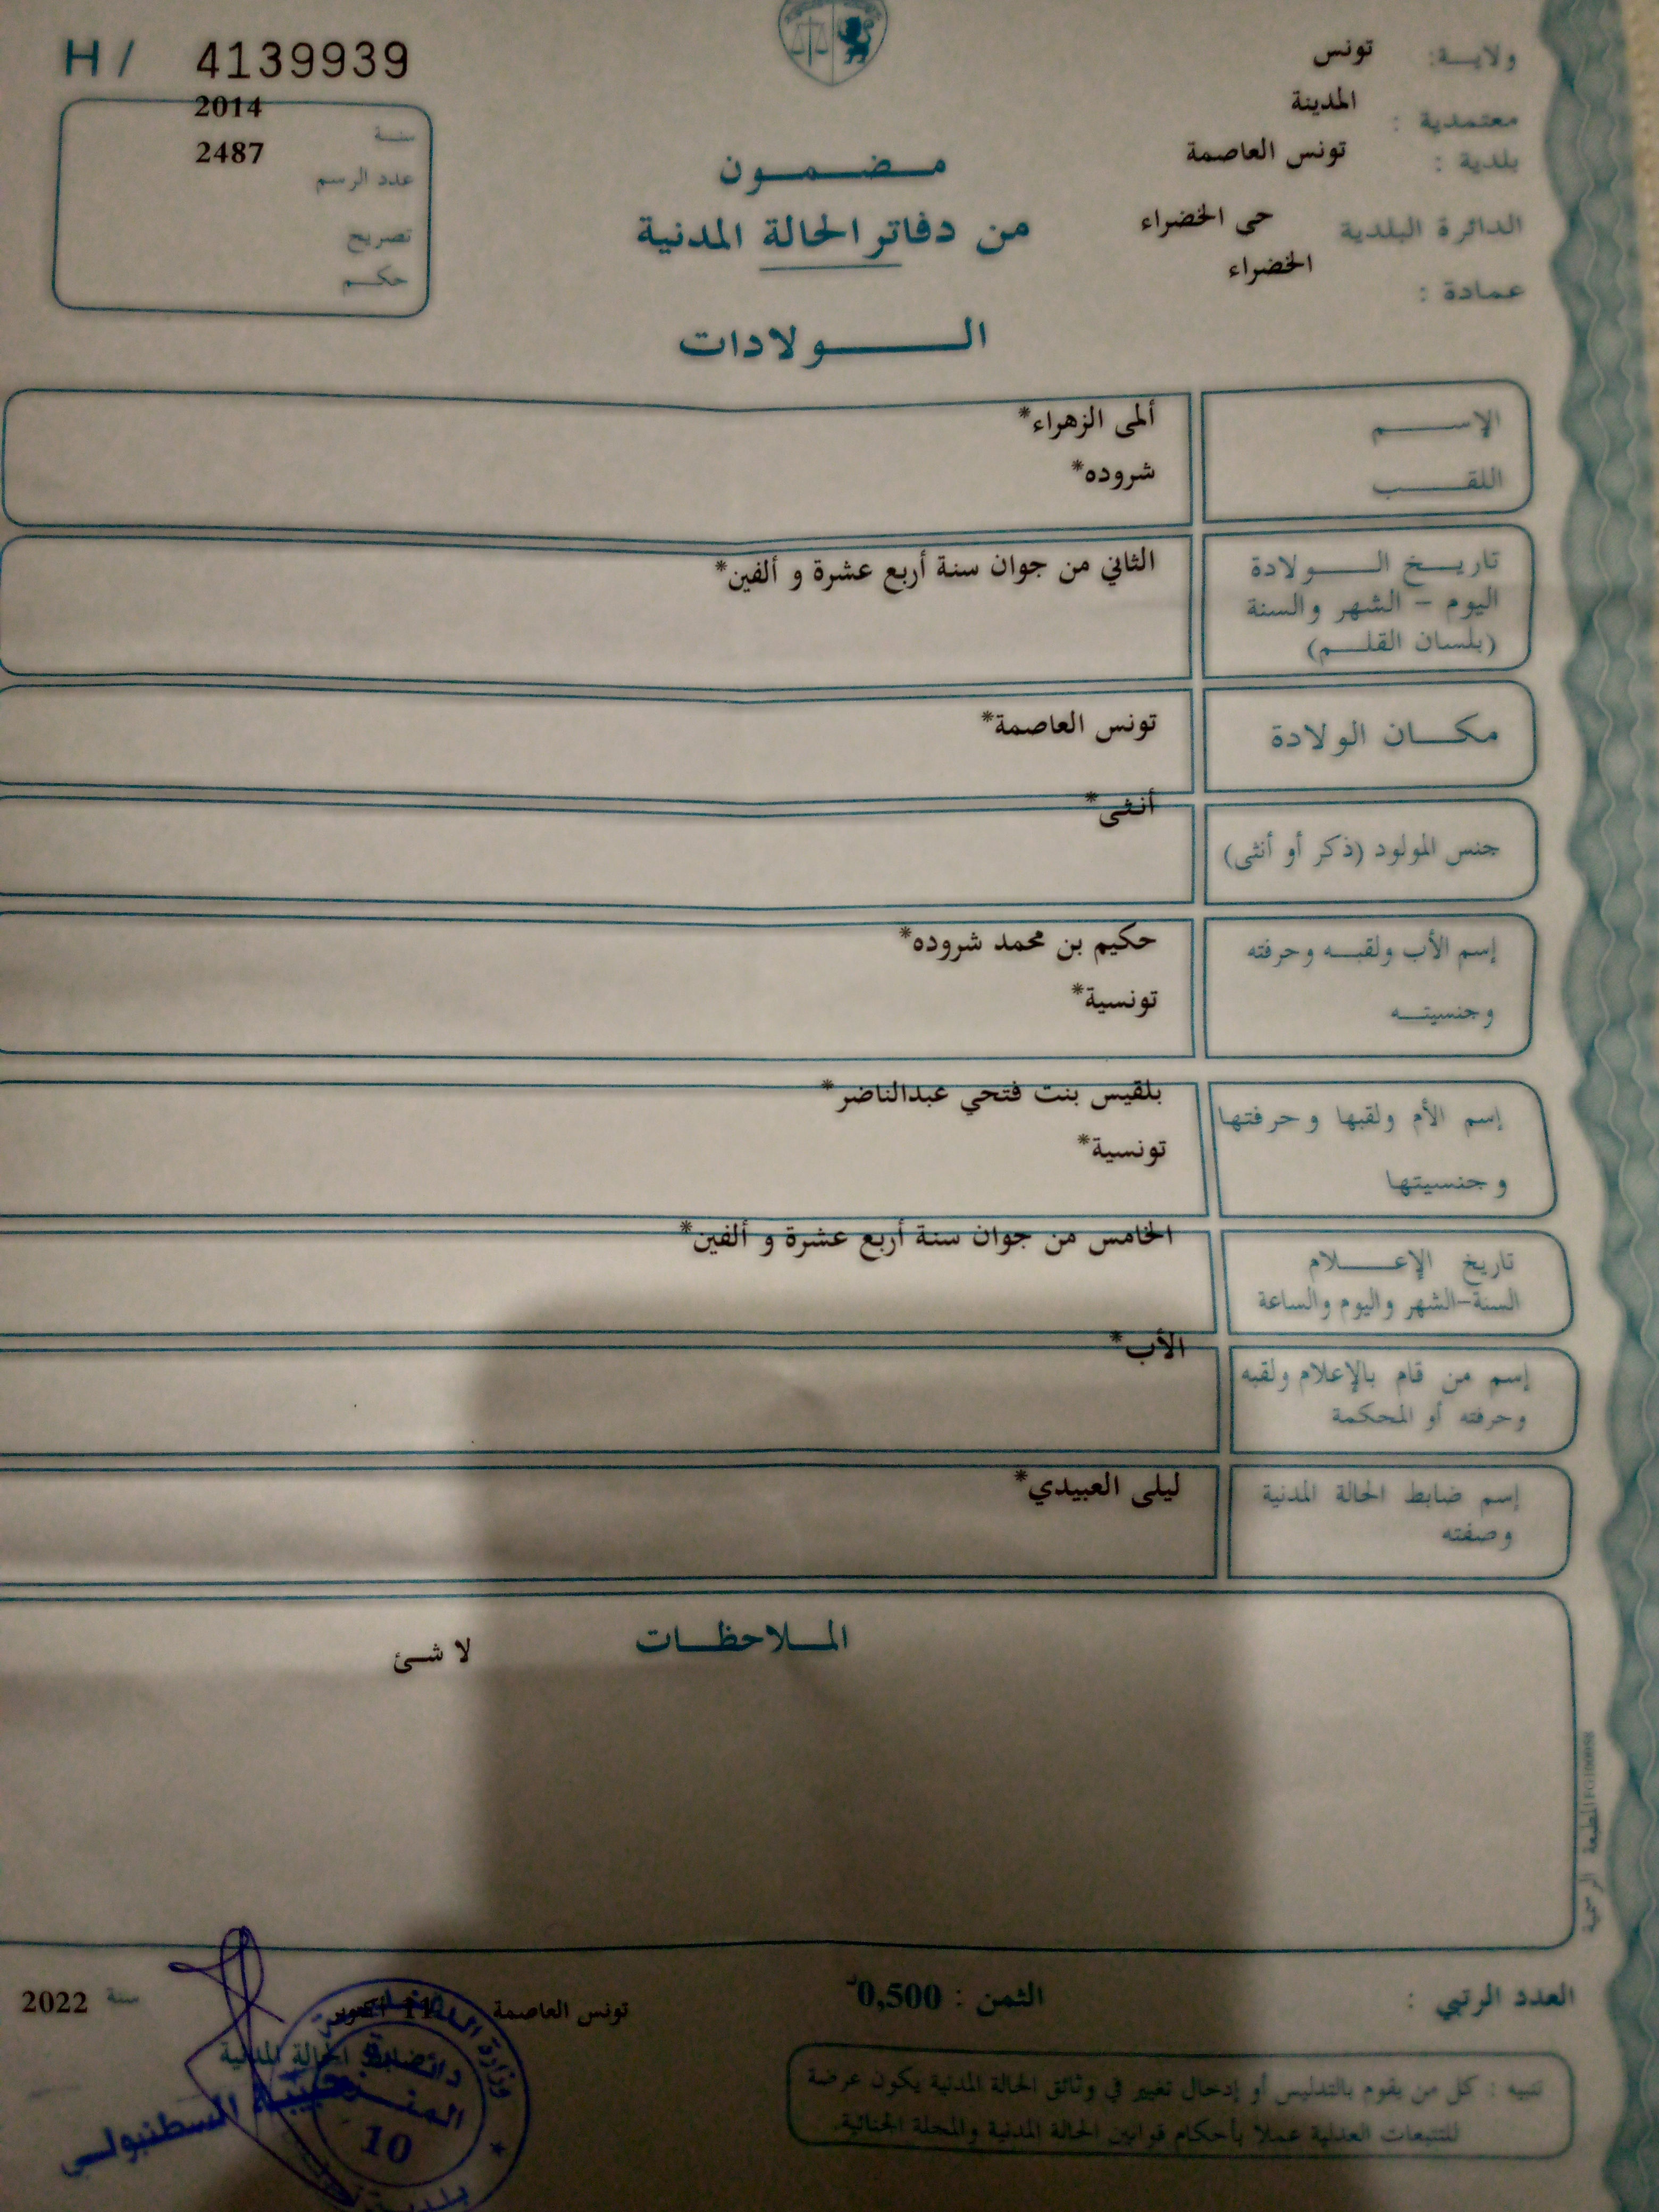 H / 4139939
ولايـة: تونس
معتمدية : المدينة
بلدية : تونس العاصمة
الدائرة البلدية حى الخضراء
عمادة : الخضراء
سنة 2014
عدد الرسم 2487
تصريح
حكم
مضمون
من دفاتر الحالة المدنية
الولادات
الإسم ألمى الزهراء*
اللقب شروده*
تاريخ الولادة الثاني من جوان سنة أربع عشرة و ألفين*
اليوم - الشهر والسنة
(بلسان القلم)
مكان الولادة تونس العاصمة*
جنس المولود (ذكر أو أنثى) أنثى*
إسم الأب ولقبه وحرفته حكيم بن محمد شروده*
وجنسيته تونسية*
إسم الأم ولقبها وحرفتها بلقيس بنت فتحي عبدالناضر*
وجنسيتها تونسية*
تاريخ الإعلام الخامس من جوان سنة أربع عشرة و ألفين*
السنة-الشهر واليوم والساعة
إسم من قام بالإعلام ولقبه الأب*
وحرفته أو المحكمة
إسم ضابط الحالة المدنية ليلى العبيدي*
وصفته
الملاحظات
لا شئ
المطبعة الرسمية
العدد الرتبي :
الثمن : 0,500د
تونس العاصمة 11 أكتوبر سنة 2022
ضابط الحالة المدنية
السطنبولي
وزارة
دائرة
10
بلدية
تنبيه : كل من يقوم بالتدليس أو إدخال تغيير في وثائق الحالة المدنية يكون عرضة
للتتبعات العدلية عملا بأحكام قوانين الحالة المدنية والمجلة الجنائية.